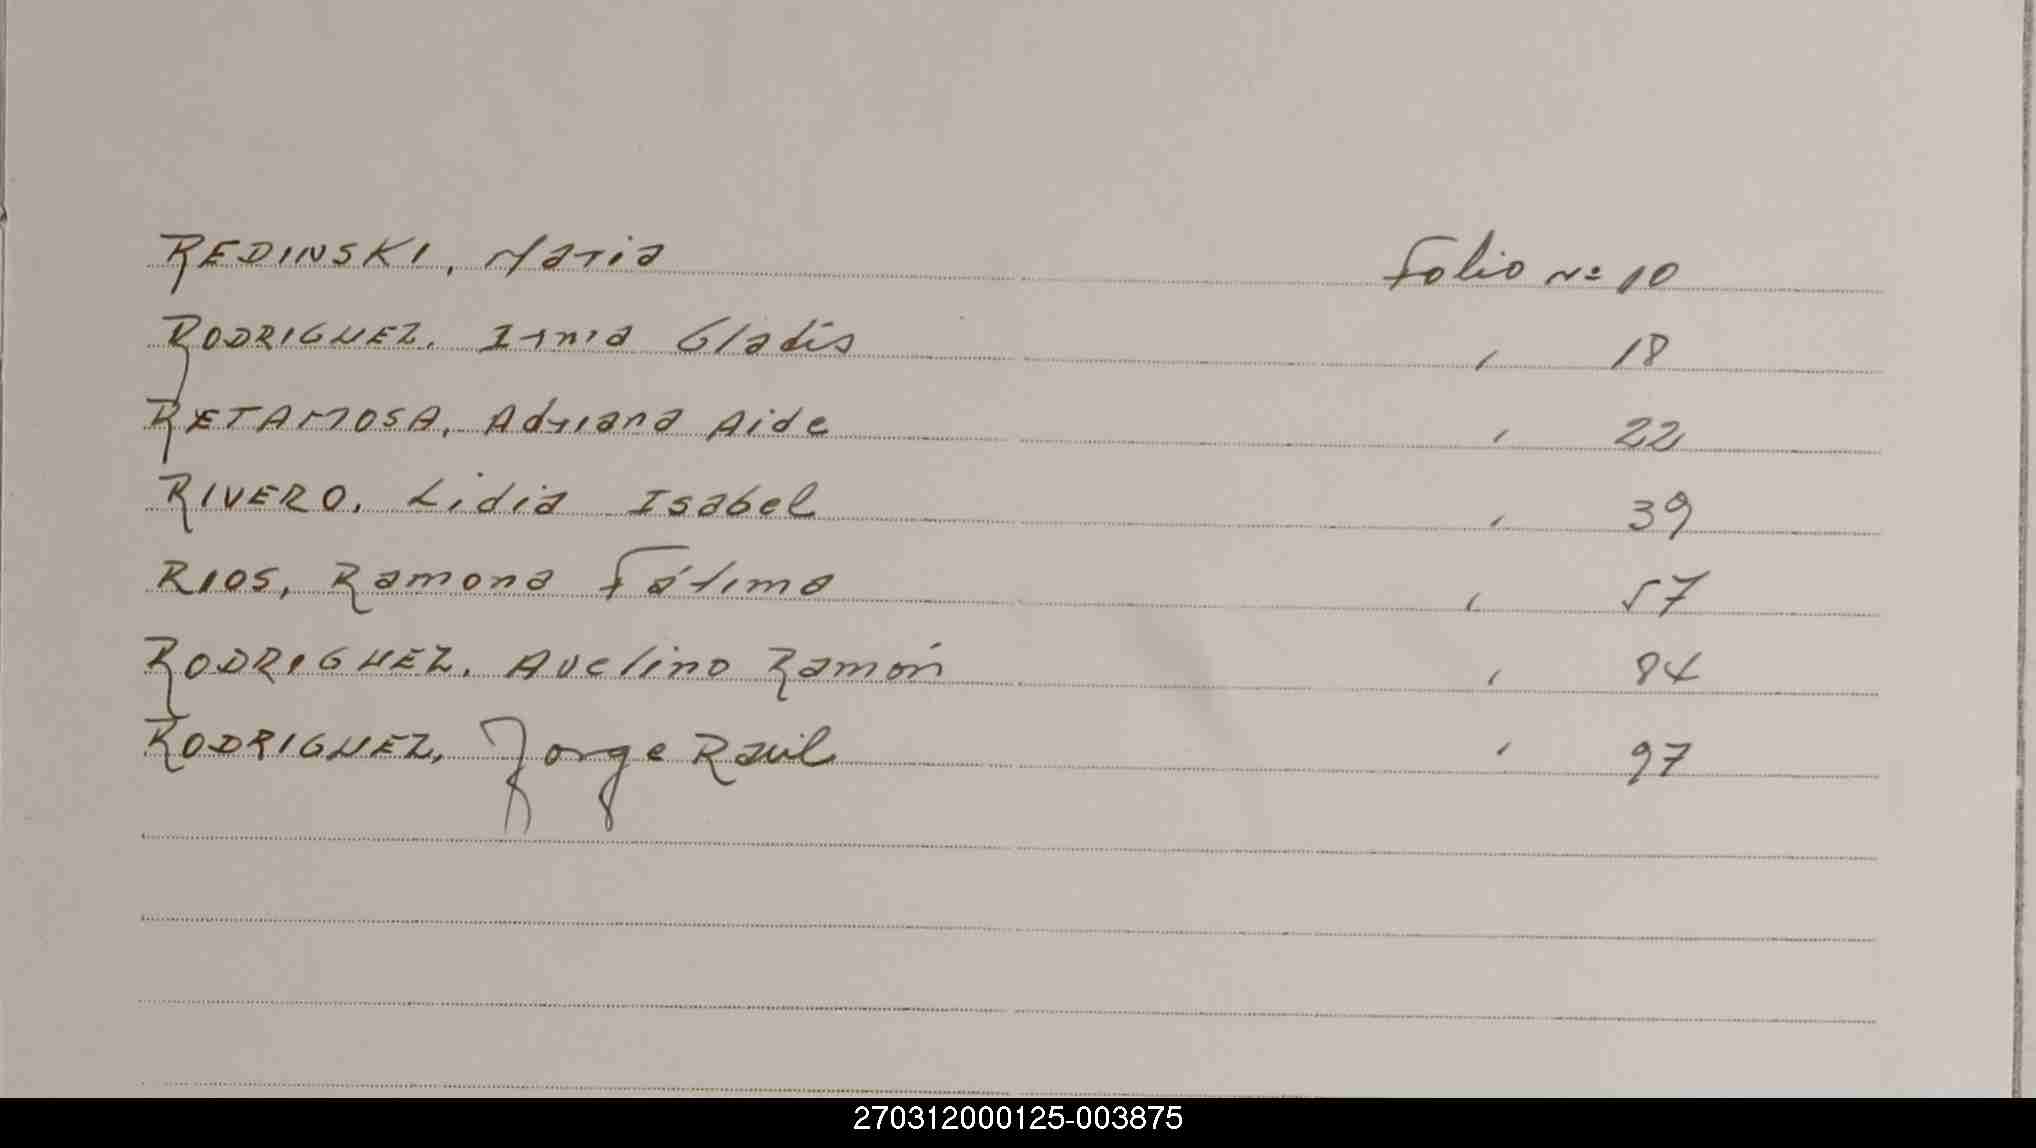 REDINSKI, Maria Folio Nº 10
RODRIGUEZ, Irma Gladis " 18
RETAMOSA, Adriana Aide " 22
RIVERO, Lidia Isabel " 39
RIOS, Ramona Fátima " 57
RODRIGUEZ, Avelino Ramón " 84
RODRIGUEZ, Jorge Raúl " 97
270312000125-003875